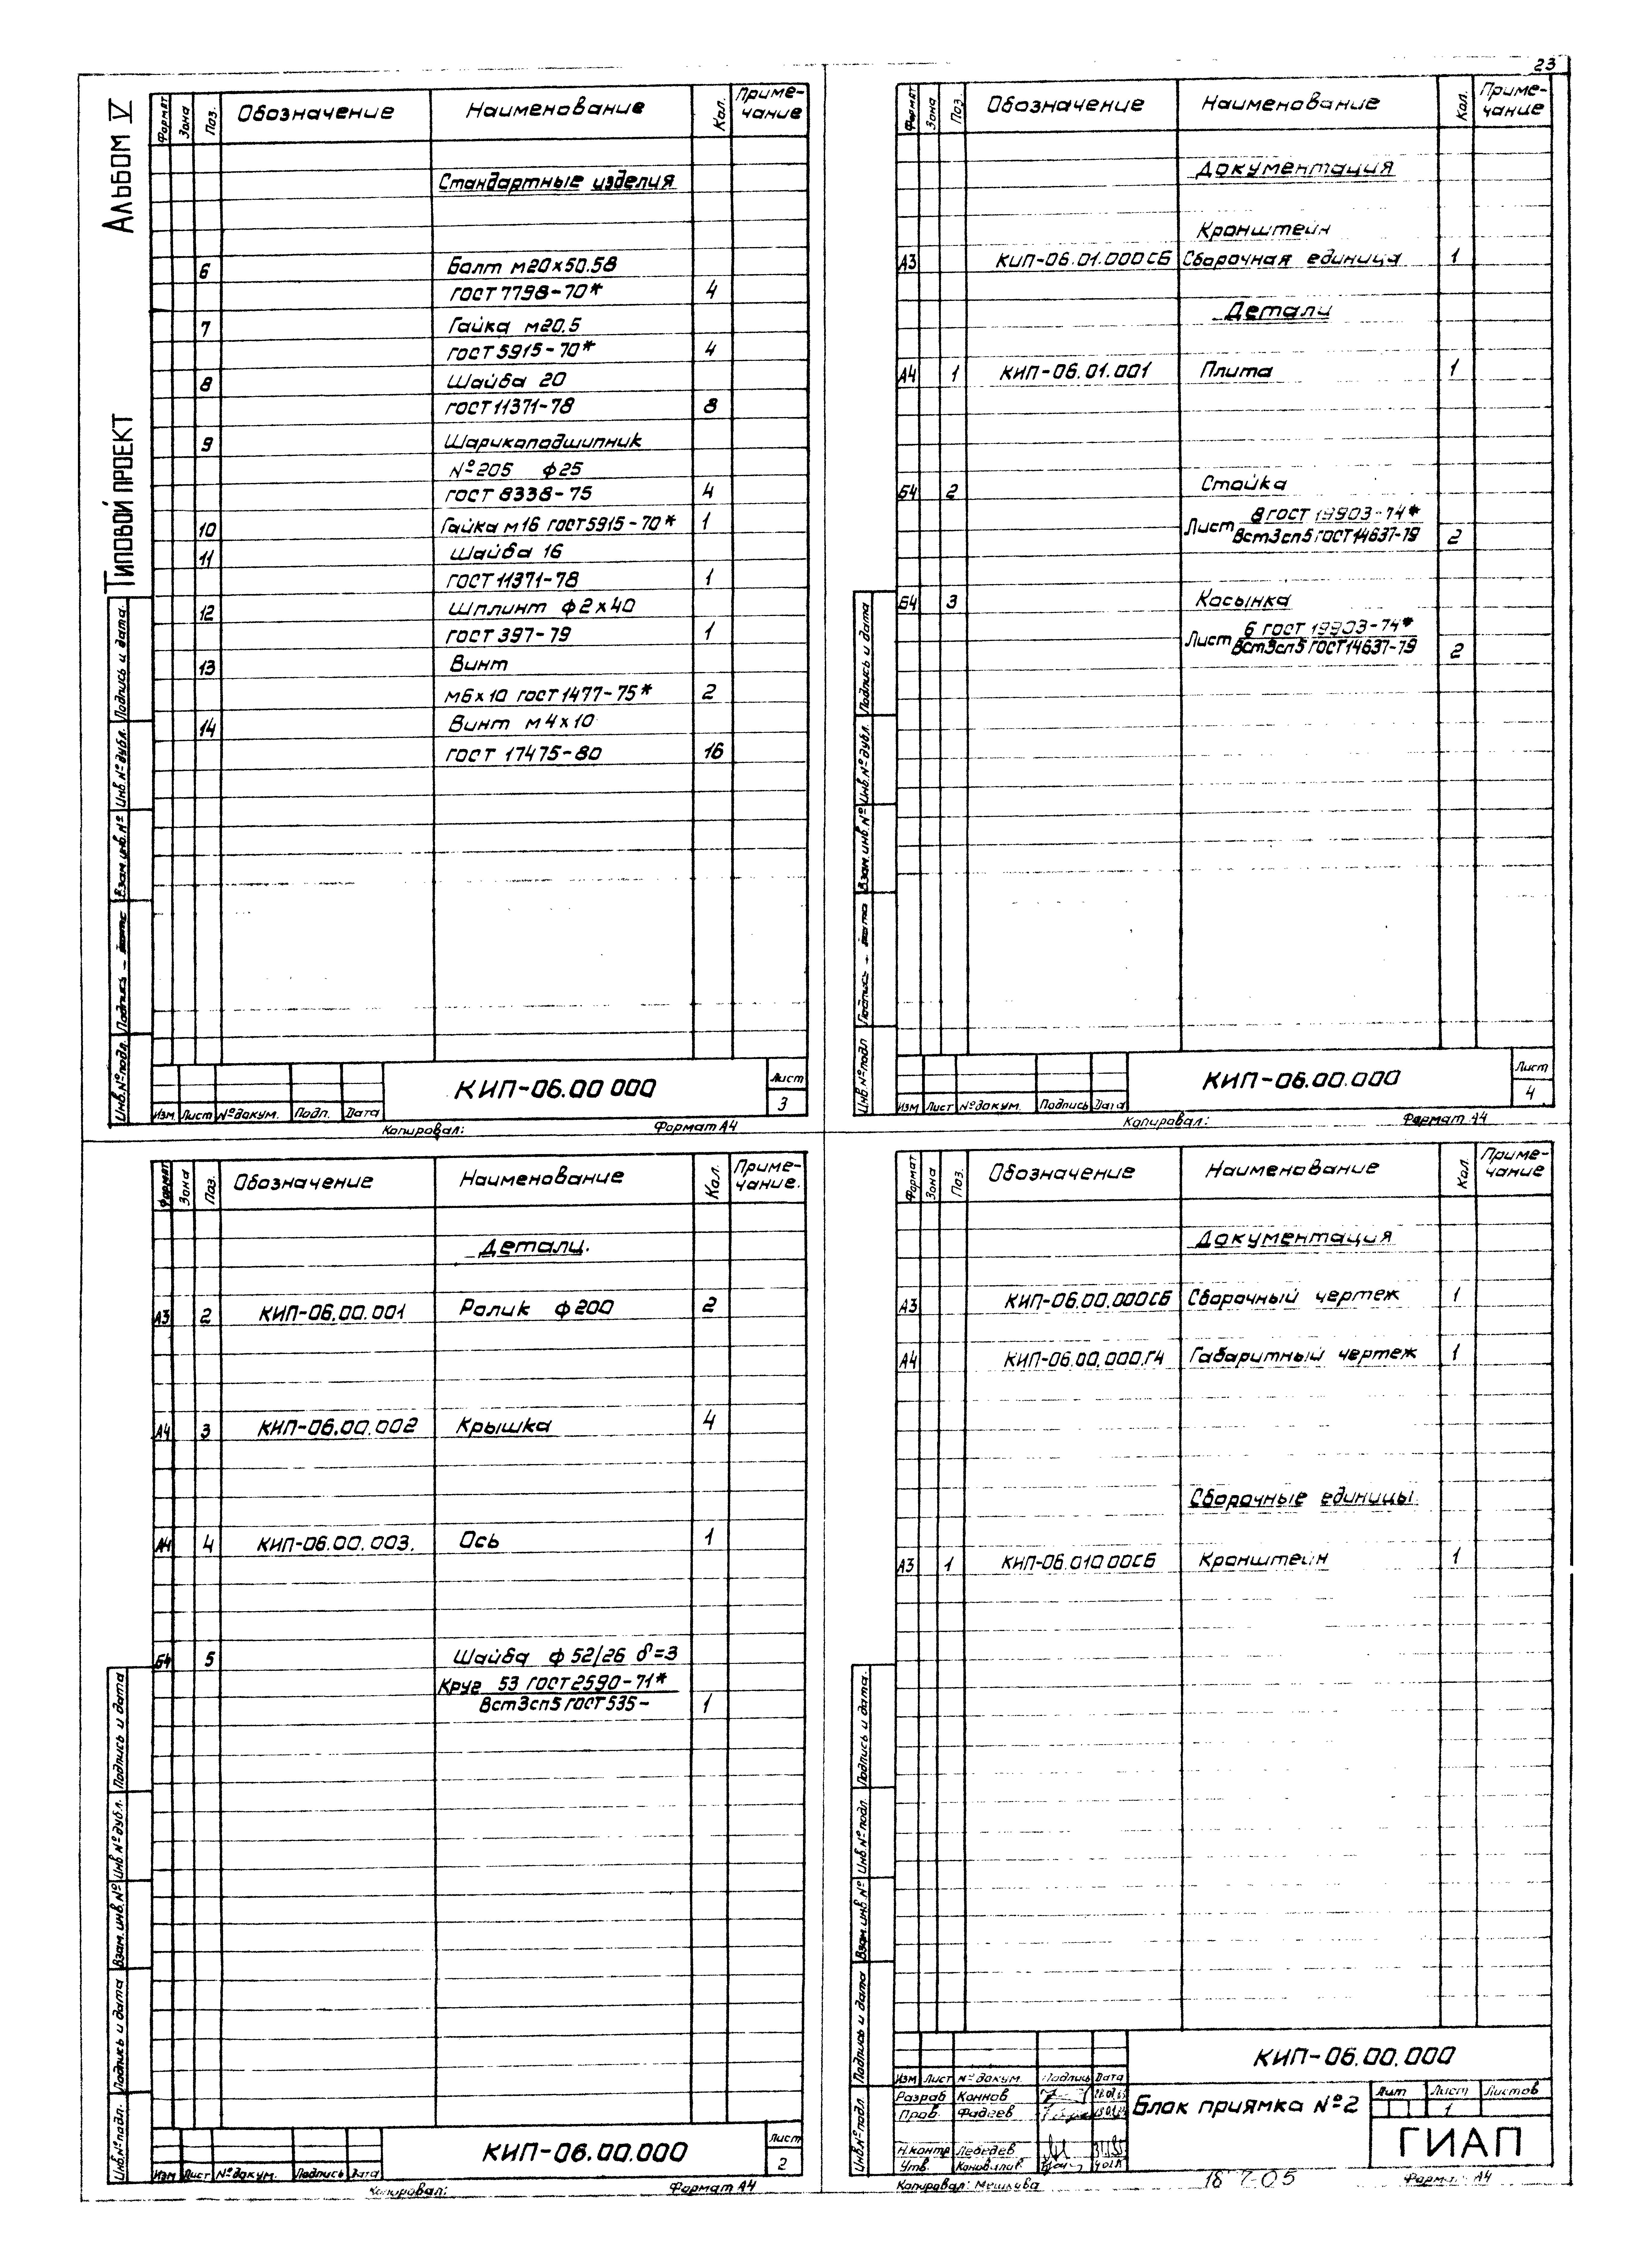 23
Альбом V
Типовой проект
Формат Зона Поз. Обозначение Наименование Кол. Приме-
чание
Стандартные изделия
6 Болт м20х50.58
гост 7798-70* 4
7 Гайка м20.5
гост 5915-70* 4
8 Шайба 20
гост 11371-78 8
9 Шарикоподшипник
№205 ф25
гост 8338-75 4
10 Гайка м16 гост 5915-70* 1
11 Шайба 16
гост 11371-78 1
12 Шплинт ф2х40
гост 397-79 1
13 Винт
м6х10 гост 1477-75* 2
14 Винт м4х10
гост 17475-80 16
Инв.№подл. Подпись Взам.инв.№ Инв.№дубл. Подпись и дата.
Изм Лист №докум. Подп. Дата
КИП-06.00 000
Лист
3
Копировал: Формат А4
Формат Зона Поз. Обозначение Наименование Кол. Приме-
чание
Документация
Кронштейн
А3 КИП-06.01.000СБ Сборочная единица 1
Детали
А4 1 КИП-06.01.001 Плита 1
Б4 2 Стойка
Лист 8 гост 19903-74*
Вст3сп5 гост 14637-79 2
Б4 3 Косынка
Лист 6 гост 19903-74*
Вст3сп5 гост 14637-79 2
Инв №подл Подпись Взам.инв.№ Инв.№дубл. Подпись и дата
Изм Лист №докум. Подпись Дата
КИП-06.00.000
Лист
4
Копировал: Формат А4
Формат Зона Поз. Обозначение Наименование Кол. Приме-
чание.
Детали.
А3 2 КИП-06.00.001 Ролик ф200 2
А4 3 КИП-06.00.002 Крышка 4
А4 4 КИП-06.00.003. Ось 1
Б4 5 Шайба ф52/26 δ=3
Круг 53 гост 2590-71*
Вст3сп5 гост 535- 1
Инв.№подл. Подпись и дата Взам.инв.№ Инв.№дубл. Подпись и дата
Изм Лист №докум. Подпись Дата
КИП-06.00.000
Лист
2
Копировал: Формат А4
Формат Зона Поз. Обозначение Наименование Кол. Приме-
чание
Документация
А3 КИП-06.00.000СБ Сборочный чертеж 1
А4 КИП-06.00.000.Г4 Габаритный чертеж 1
Сборочные единицы.
А3 1 КИП-06.010.00СБ Кронштейн 1
Инв.№подл Подпись и дата Взам.инв.№ Инв.№подл. Подпись и дата.
КИП-06.00.000
Изм Лист №докум. Подпись Дата
Разраб Коннов
Пров. Фадеев
Н.контр Лебедев
Утв.
Блок приямка №2
Лит Лист Листов
1
ГИАП
Копировал: Мешкова Формат А4